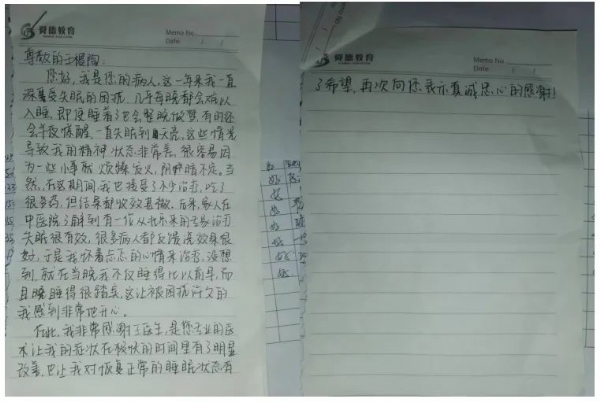 舜德教育
Memo No.
Date: / /
尊敬的王
您好,我是您的病人,这一年来我一直
深受失眠的困扰,几乎每晚都会难以
入睡,即使睡着了也会整晚做梦,有时还
会半夜惊醒,一直失眠到天亮,这些情况
导致我的精神状态非常差,很容易因
为一些小事就烦躁发火,阴晴不定。当
然,在这期间,我也接受了不少治疗,吃了
很多药,但结果都收效甚微。后来,家人在
中医院了解到有一位从北京来的专家治疗
失眠很有效,很多病人都反馈说效果很
好,于是我怀着忐忑的心情来治疗,没想
到,就在当晚我不仅睡得比以前早,而
且睡得很踏实,这让被困扰许久的
我感到非常地开心。
在此,我非常感谢王医生,是您专业的医
术让我的症状在极快的时间里有了明显
改善,也让我对恢复正常的睡眠状态有
舜德教育
Memo No.
Date: / /
了希望,再次向您表示真诚忠心的感谢!